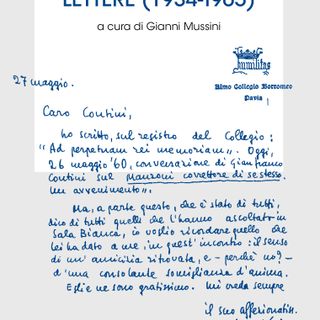 LETTERE (1934-1965)
a cura di Gianni Mussini
humilitas
Almo Collegio Borromeo
Pavia
27 maggio.
Caro Contini,
ho scritto, sul registro del Collegio:
"Ad perpetuam rei memoriam". Oggi,
26 maggio '60, conversazione di Gianfranco
Contini sul Manzoni correttore di se stesso.
Un avvenimento".
Ma, a parte questo, che è stato di tutti,
dico di tutti quelli che l'hanno ascoltato in
Sala Bianca, io voglio ricordare quello che
lei ha dato a me, in quest'incontro: il senso
di un'amicizia ritrovata, e - perché no? -
d'una consolante somiglianza d'anima.
E gliene sono gratissimo. Mi creda sempre
il suo affezionatiss.